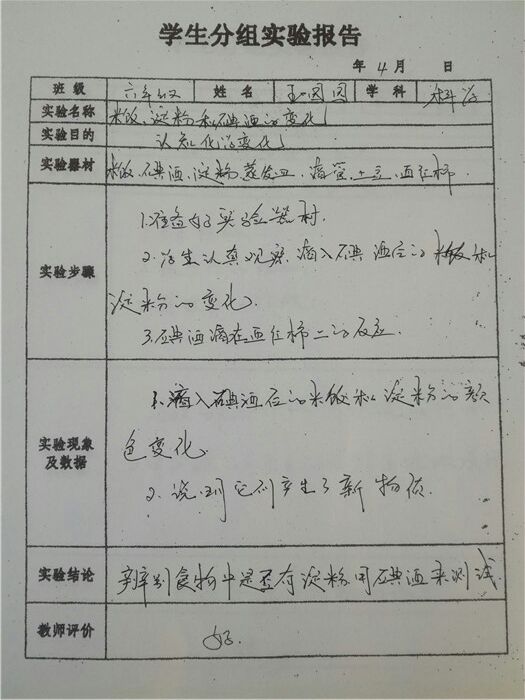 学生分组实验报告
年 4 月 日
班 级 六年级 姓 名 王圆圆 学 科 科学
实验名称 米饭、淀粉和碘酒的变化
实验目的 认知化学变化
实验器材 米饭、碘酒、淀粉、蒸发皿、滴管、土豆、西红柿
实验步骤
1.准备好实验器材.
2.学生认真观察,滴入碘酒后的米饭和
淀粉的变化.
3.碘酒滴在西红柿上的反应.
实验现象及数据
1.滴入碘酒后的米饭和淀粉的颜
色变化.
2.说明它们产生了新物质.
实验结论 辨别食物中是否有淀粉用碘酒来测试
教师评价 好.